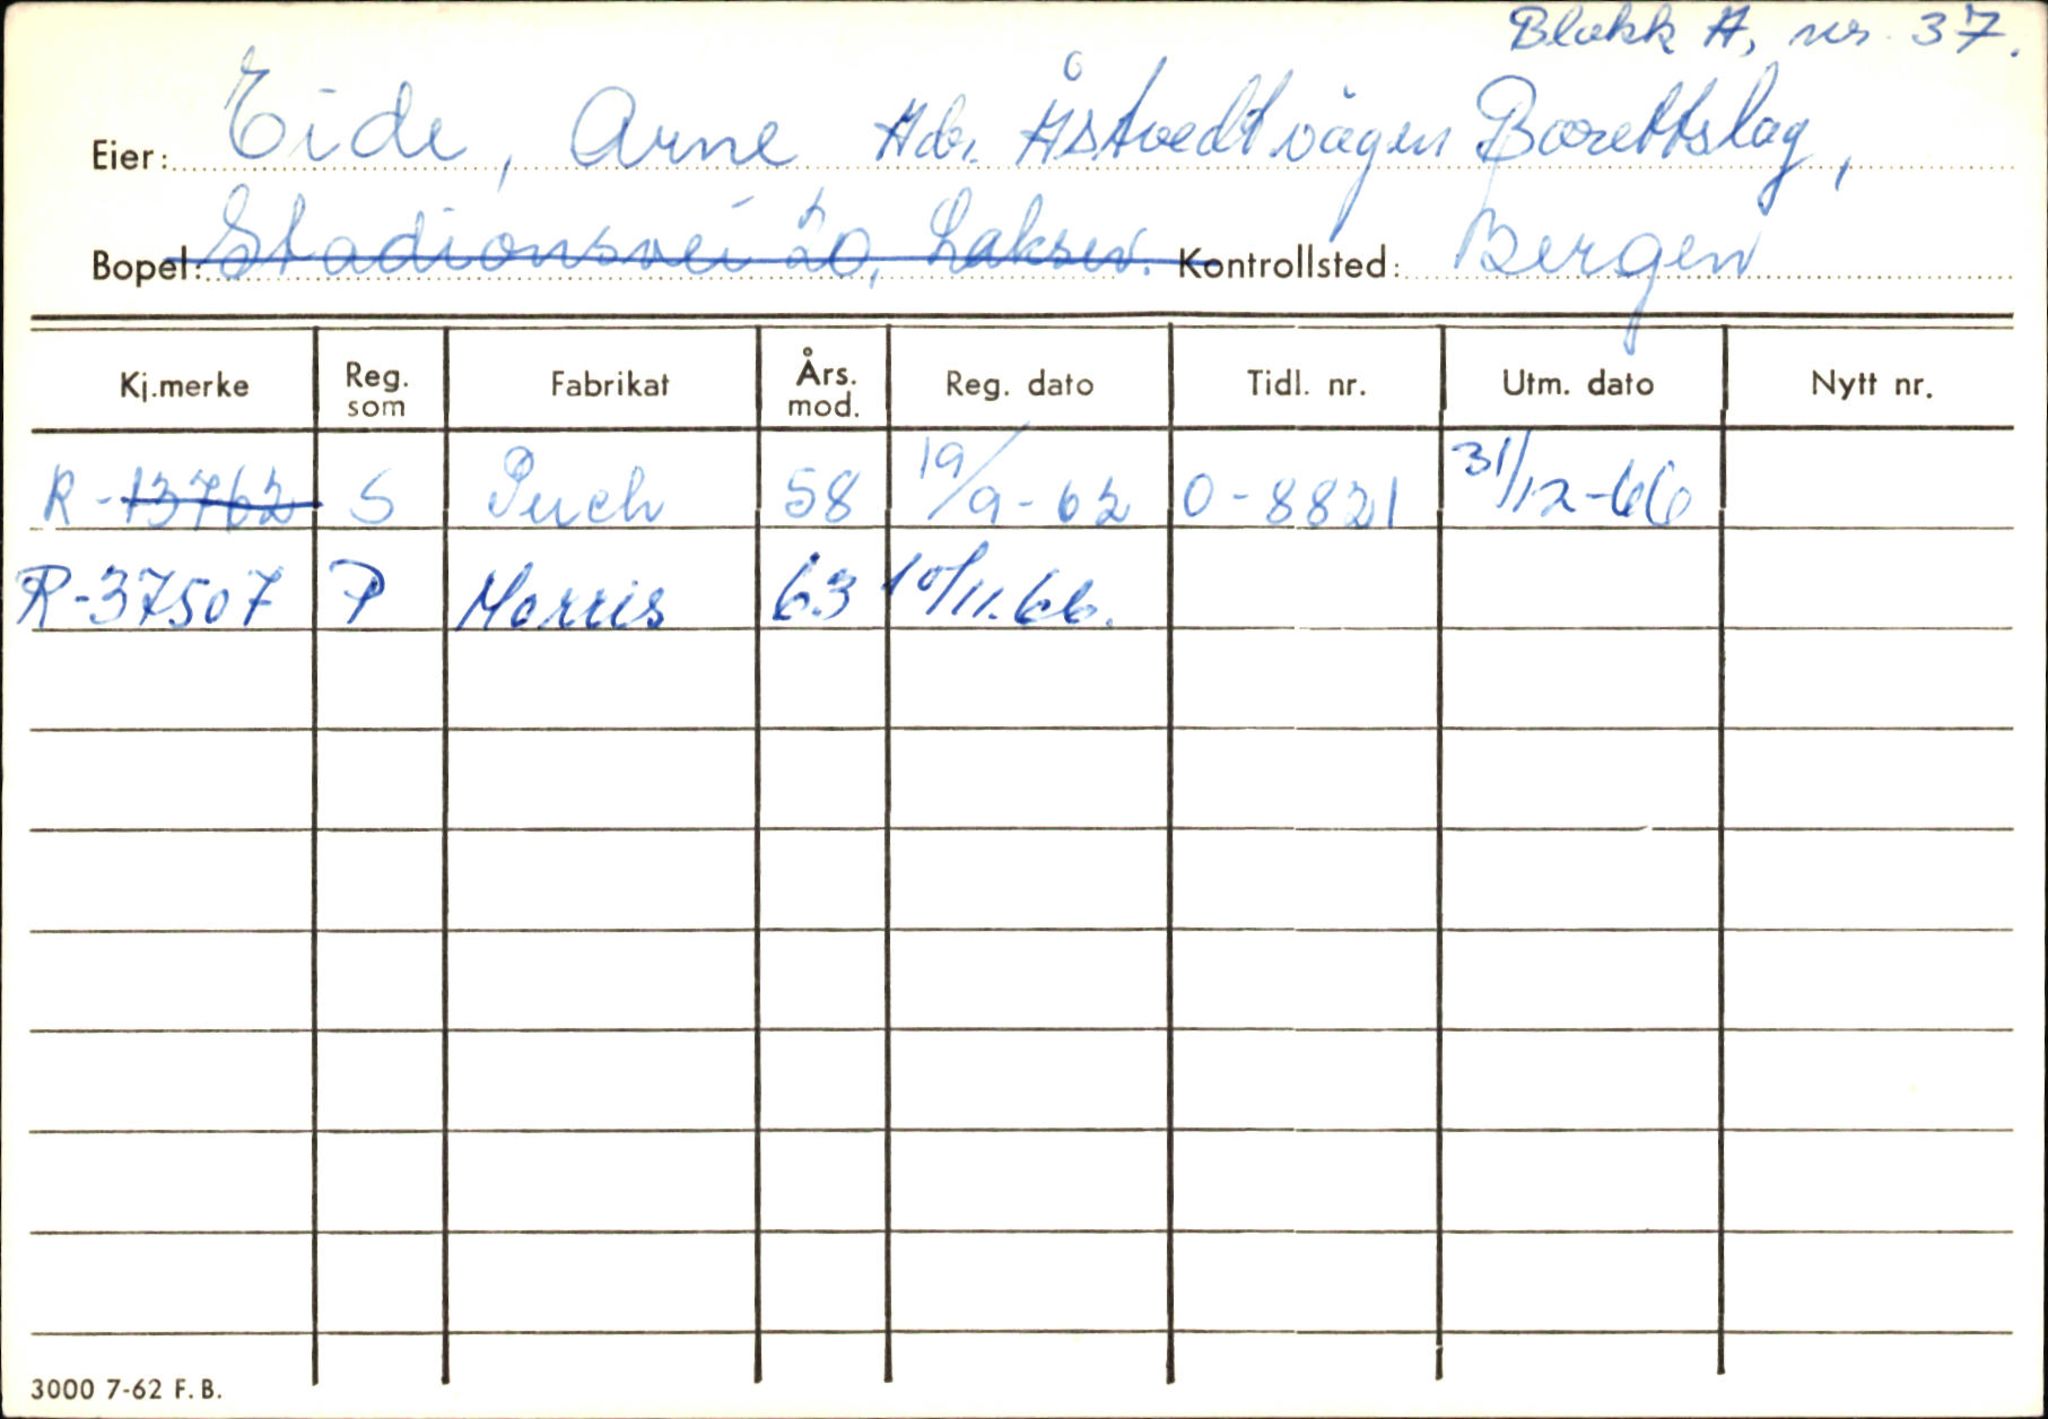 Blokk A, nr. 37.
Eier: Eide, Arne Adr. Åstvedtvågen Borettslag,
Bopel: Stadionsvei 20, Laksev. Kontrollsted: Bergen
Kj.merke Reg. som Fabrikat Års. mod. Reg. dato Tidl. nr. Utm. dato Nytt nr.
R-13762 S Puch 58 19/9-62 O-8821 31/12-66
R-37507 P Morris 63 10/11.66.
3000 7-62 F. B.